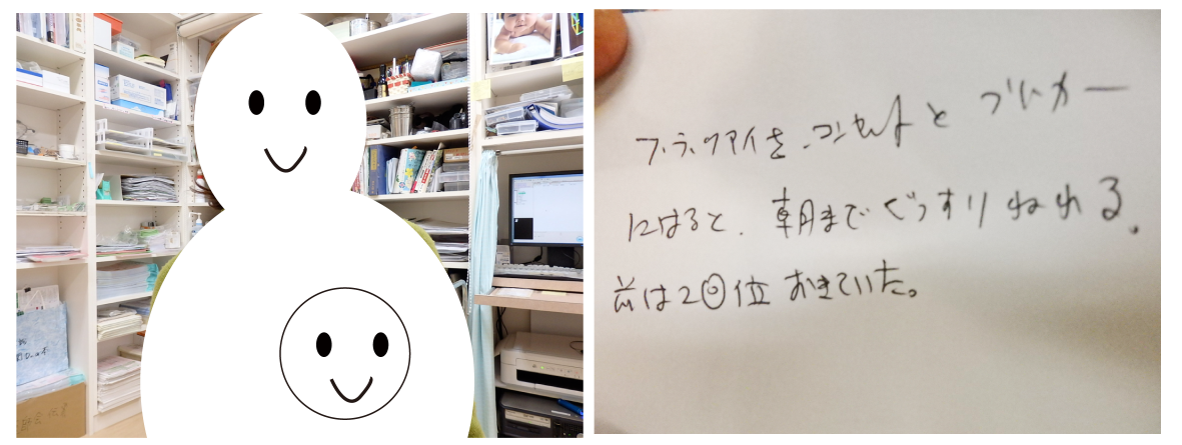 ブラックアイを、コンセントとブレーカー
にはると、朝までぐっすりねれる。
前は2回位おきていた。